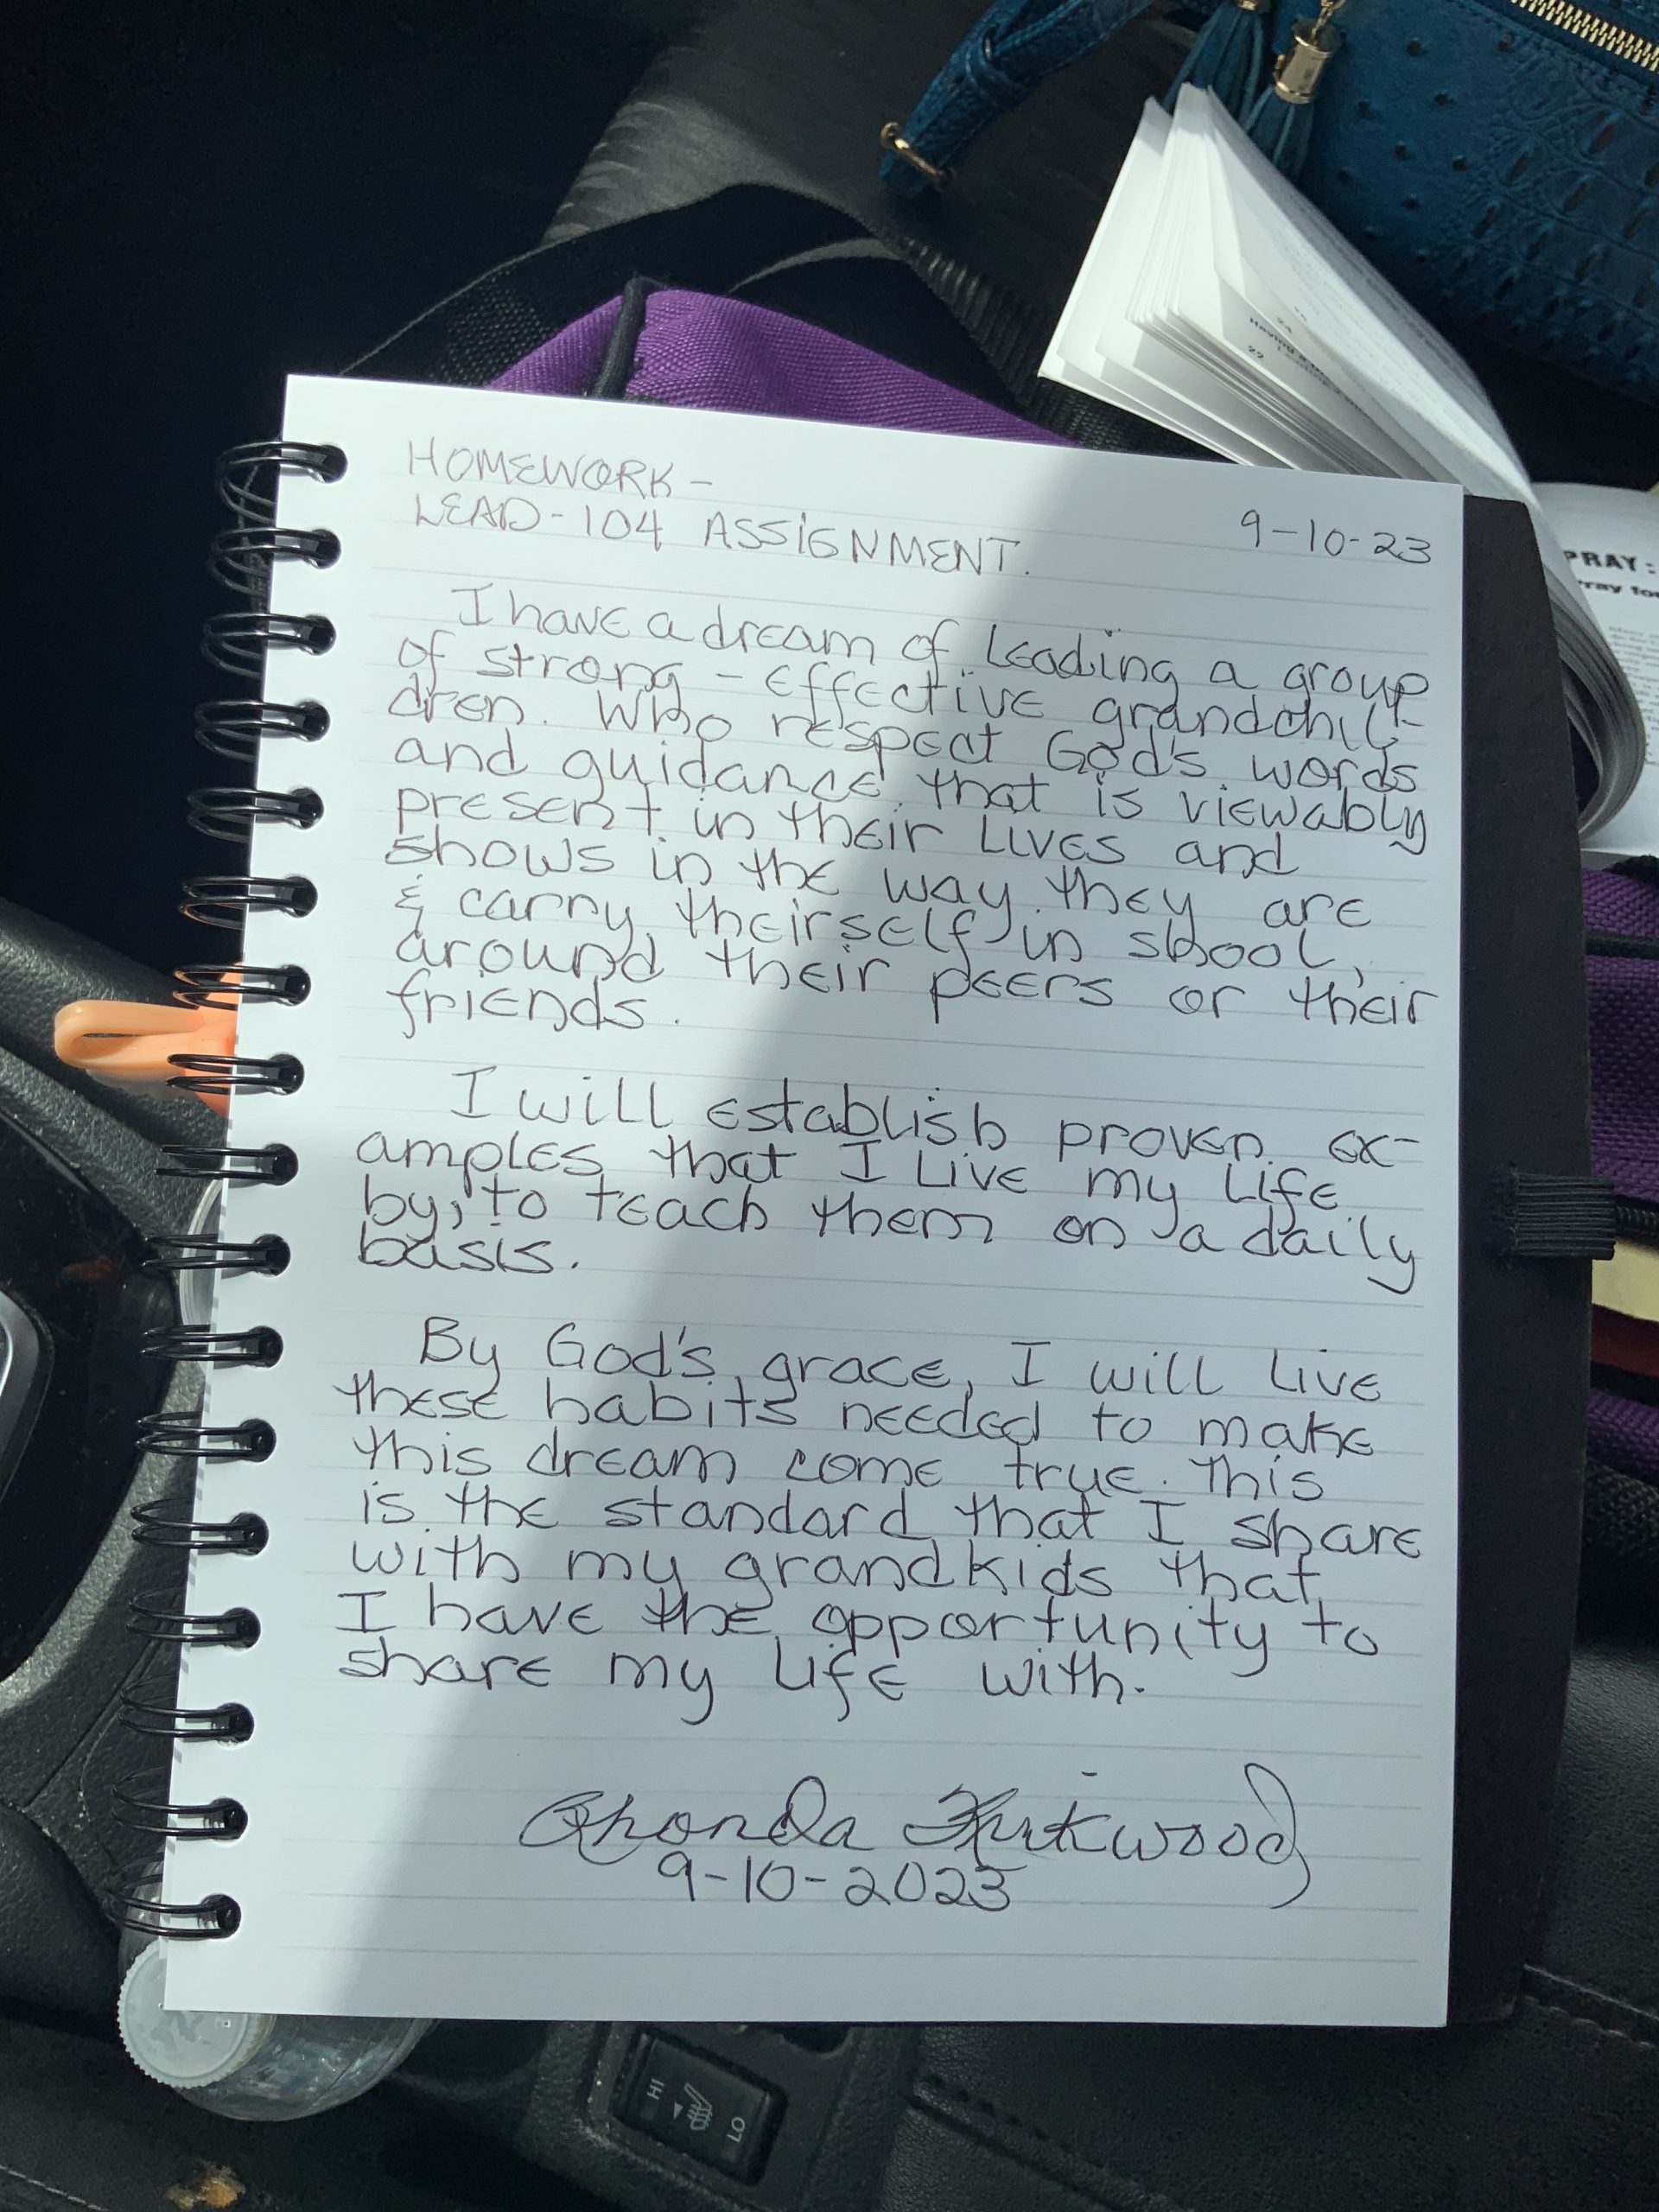 HOMEWORK-
LEAD-104 ASSIGNMENT.
9-10-23
I have a dream of leading a group
of strong - effective grandchil-
dren. Who respect God's words
and guidance that is viewably
present in their lives and
shows in the way they are
& carry theirself in shool,
around their peers or their
friends.
I will establish proven ex-
amples that I live my life
by, to teach them on a daily
basis.
By God's grace, I will live
these habits needed to make
this dream come true. This
is the standard that I share
with my grandkids that
I have the opportunity to
share my life with.
Rhonda Kirkwood
9-10-2023
PRAY:
22
24
HI
LO